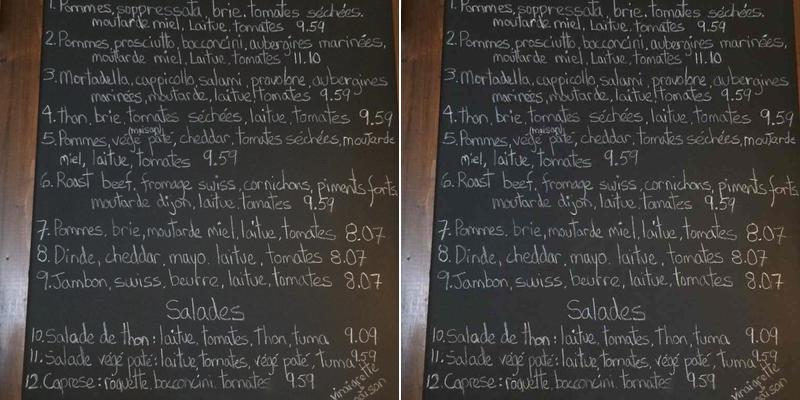 1. Pommes, soppressata, brie, tomates séchées,
moutarde miel, Laitue, tomates 9.59
2. Pommes, prosciutto, bocconcini, aubergines marinées,
moutarde miel, Laitue, tomates 11.10
3. Mortadella, cappicollo, salami, provolone, aubergines
marinées, moutarde, laitue, tomates 9.59
4. thon, brie, tomates séchées, laitue, tomates 9.59
(maison)
5. Pommes, végé paté, cheddar, tomates séchées, moutarde
miel, laitue, tomates 9.59
6. Roast beef, fromage suisse, cornichons, piments forts,
moutarde dijon, laitue, tomates 9.59
7. Pommes, brie, moutarde miel, laitue, tomates 8.07
8. Dinde, cheddar, mayo, laitue, tomates 8.07
9. Jambon, suisse, beurre, laitue, tomates 8.07
Salades
10. Salade de thon: laitue, tomates, Thon, tuma 9.09
11. Salade végé paté: laitue, tomates, végé paté, tuma 9.59
12. Caprese: roquette, bocconcini, tomates 9.59
vinaigrette
maison
1. Pommes, soppressata, brie, tomates séchées,
moutarde miel, Laitue, tomates 9.59
2. Pommes, prosciutto, bocconcini, aubergines marinées,
moutarde miel, Laitue, tomates 11.10
3. Mortadella, cappicollo, salami, provolone, aubergines
marinées, moutarde, laitue, tomates 9.59
4. thon, brie, tomates séchées, laitue, tomates 9.59
(maison)
5. Pommes, végé paté, cheddar, tomates séchées, moutarde
miel, laitue, tomates 9.59
6. Roast beef, fromage suisse, cornichons, piments forts,
moutarde dijon, laitue, tomates 9.59
7. Pommes, brie, moutarde miel, laitue, tomates 8.07
8. Dinde, cheddar, mayo, laitue, tomates 8.07
9. Jambon, suisse, beurre, laitue, tomates 8.07
Salades
10. Salade de thon: laitue, tomates, Thon, tuma 9.09
11. Salade végé paté: laitue, tomates, végé paté, tuma 9.59
12. Caprese: roquette, bocconcini, tomates 9.59
vinaigrette
maison